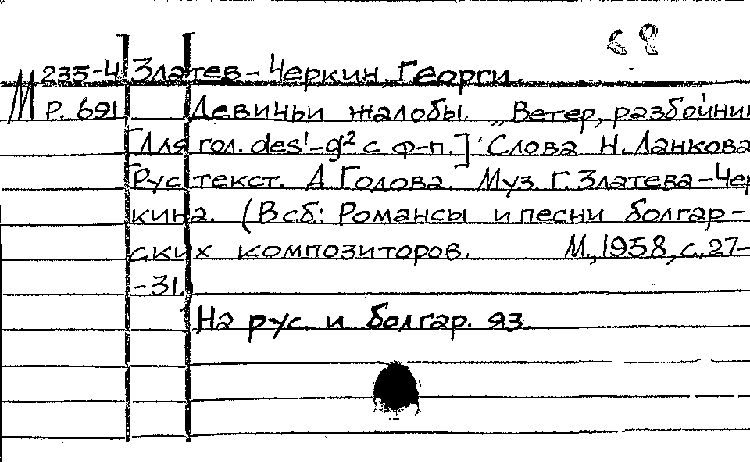 М 235-4 Златев-Черкин Георги.
Р. 691 Девичьи жалобы. „Ветер, разбойник
[Для гол. des¹-g² с ф-п.] Слова Н. Ланкова
Рус текст. Д. Голова. Муз. Г. Златева-Чер
кина. (В сб: Романсы и песни болгар-
ских композиторов. М., 1958, с. 27-
-31.
На рус. и болгар. яз.